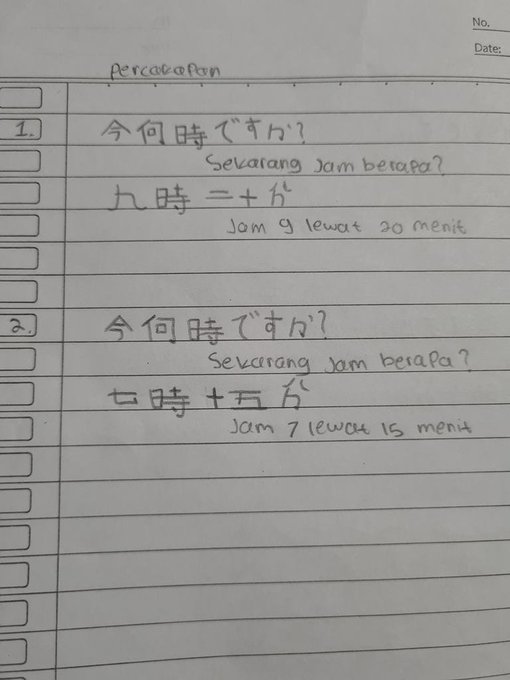 No.
Date:
Percakapan
1. 今何時ですか?
Sekarang Jam berapa?
九時二十分
Jam 9 lewat 20 menit
2. 今何時ですか?
Sekarang Jam berapa?
七時十五分
Jam 7 lewat 15 menit